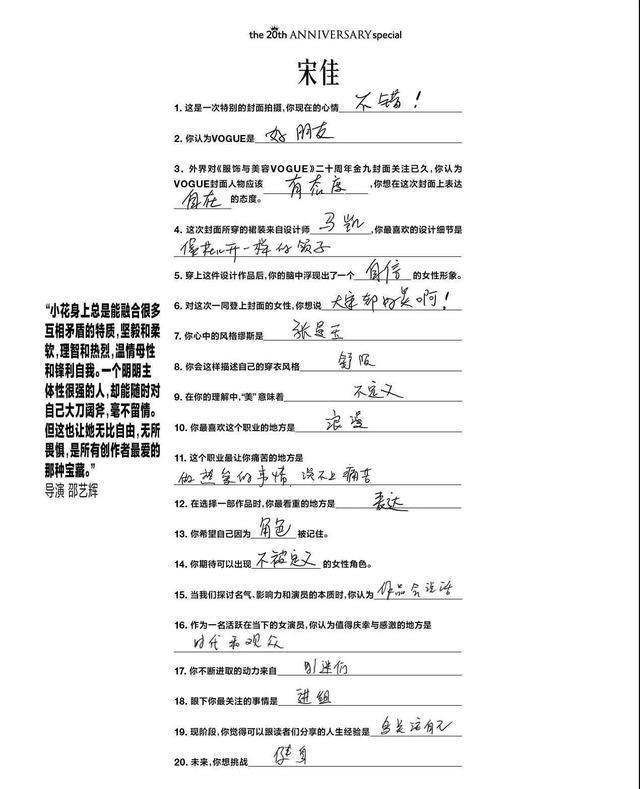 the 20th ANNIVERSARY special
宋佳
1. 这是一次特别的封面拍摄,你现在的心情 不错!
2. 你认为VOGUE是 好朋友
3. 外界对《服饰与美容VOGUE》二十周年金九封面关注已久,你认为
VOGUE封面人物应该 有态度 ,你想在这次封面上表达
自在 的态度。
4. 这次封面所穿的裙装来自设计师 马凯 ,你最喜欢的设计细节是
像花儿开一样 领子
5. 穿上这件设计作品后,你的脑中浮现出了一个 自信 的女性形象。
6. 对这次一同登上封面的女性,你想说 大家都好美啊!
7. 你心中的风格缪斯是 张曼玉
8. 你会这样描述自己的穿衣风格 舒服
9. 在你的理解中,“美”意味着 不定义
10. 你最喜欢这个职业的地方是 浪漫
11. 这个职业最让你痛苦的地方是
做热爱的事情,谈不上痛苦
12. 在选择一部作品时,你最看重的地方是 表达
13. 你希望自己因为 角色 被记住。
14. 你期待可以出现 不被定义 的女性角色。
15. 当我们探讨名气、影响力和演员的本质时,你认为 作品会说话
16. 作为一名活跃在当下的女演员,你认为值得庆幸与感激的地方是
时代和观众
17. 你不断进取的动力来自 影迷们
18. 眼下你最关注的事情是 进组
19. 现阶段,你觉得可以跟读者们分享的人生经验是 多关注自己
20. 未来,你想挑战 健身
“小花身上总是能融合很多
互相矛盾的特质,坚毅和柔
软,理智和热烈,温情母性
和锋利自我。一个明明主
体性很强的人,却能随时对
自己大刀阔斧,毫不留情。
但这也让她无比自由,无所
畏惧,是所有创作者最爱的
那种宝藏。”
导演 邵艺辉